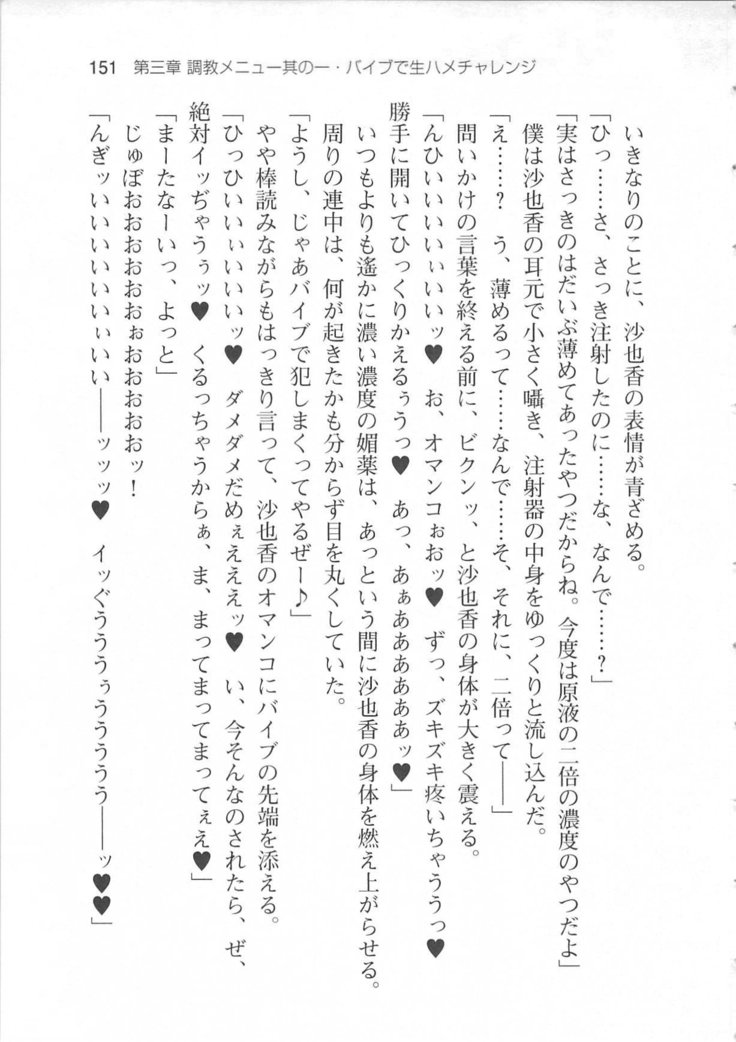 151 第三章 調教メニュー其の一・バイブで生ハメチャレンジ
いきなりのことに、沙也香の表情が青ざめる。
「ひっ……さ、さっき注射したのに……な、なんで……？」
「実はさっきのはだいぶ薄めてあったやつだからね。今度は原液の二倍の濃度のやつだよ」
僕は沙也香の耳元で小さく囁き、注射器の中身をゆっくりと流し込んだ。
「え……？　う、薄めるって……なんで……そ、それに、二倍って――」
問いかけの言葉を終える前に、ビクンッ、と沙也香の身体が大きく震える。
「んひいいいいぃいいッ♥　お、オマンコぉおッ♥　ずっ、ズキズキ疼いちゃううっ♥
勝手に開いてひっくりかえるぅうっ♥　あっ、あぁああああああッ♥」
いつもよりも遙かに濃い濃度の媚薬は、あっという間に沙也香の身体を燃え上がらせる。
周りの連中は、何が起きたかも分からず目を丸くしていた。
「ようし、じゃあバイブで犯しまくってやるぜー♪」
やや棒読みながらもはっきり言って、沙也香のオマンコにバイブの先端を添える。
「ひっひいいぃいいいッ♥　ダメダメだめぇえええッ♥　い、今そんなのされたら、ぜ、
絶対イッぢゃうぅッ♥　くるっちゃうからぁ、ま、まってまってまってぇえ♥」
「まーたなーいっ、よっと」
じゅぼおおおおおおぉおおおおおッ！
「んぎッいいいいいいいぃいい――ッッッ♥　イッぐうううぅううううう――ッ♥♥」